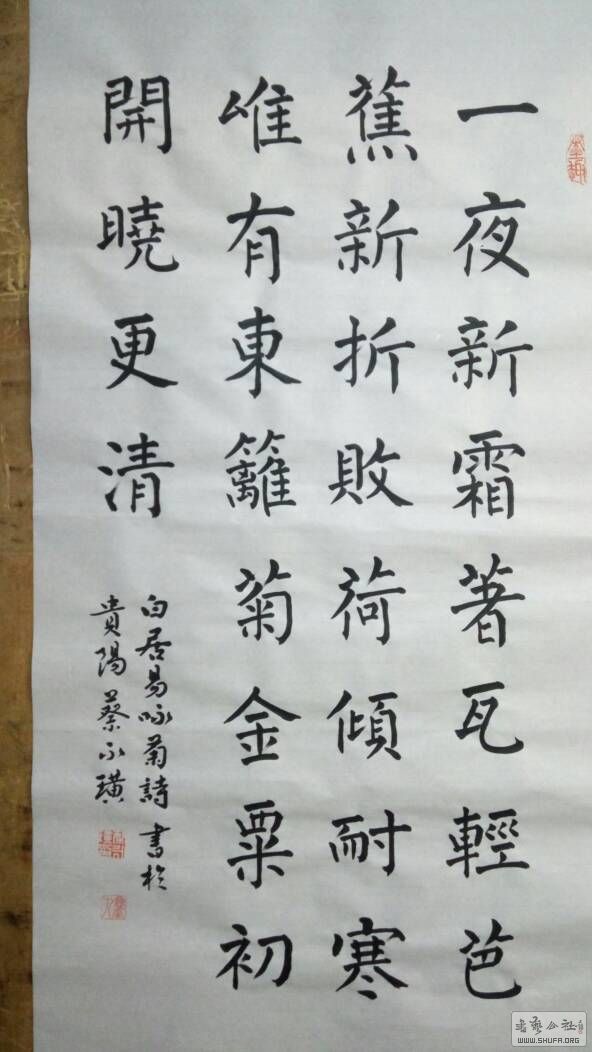 一夜新霜著瓦輕芭
蕉新折敗荷傾耐寒
唯有東籬菊金粟初
開曉更清
白居易咏菊詩書於
貴陽蔡永璜
WWW.SHUFA.ORG